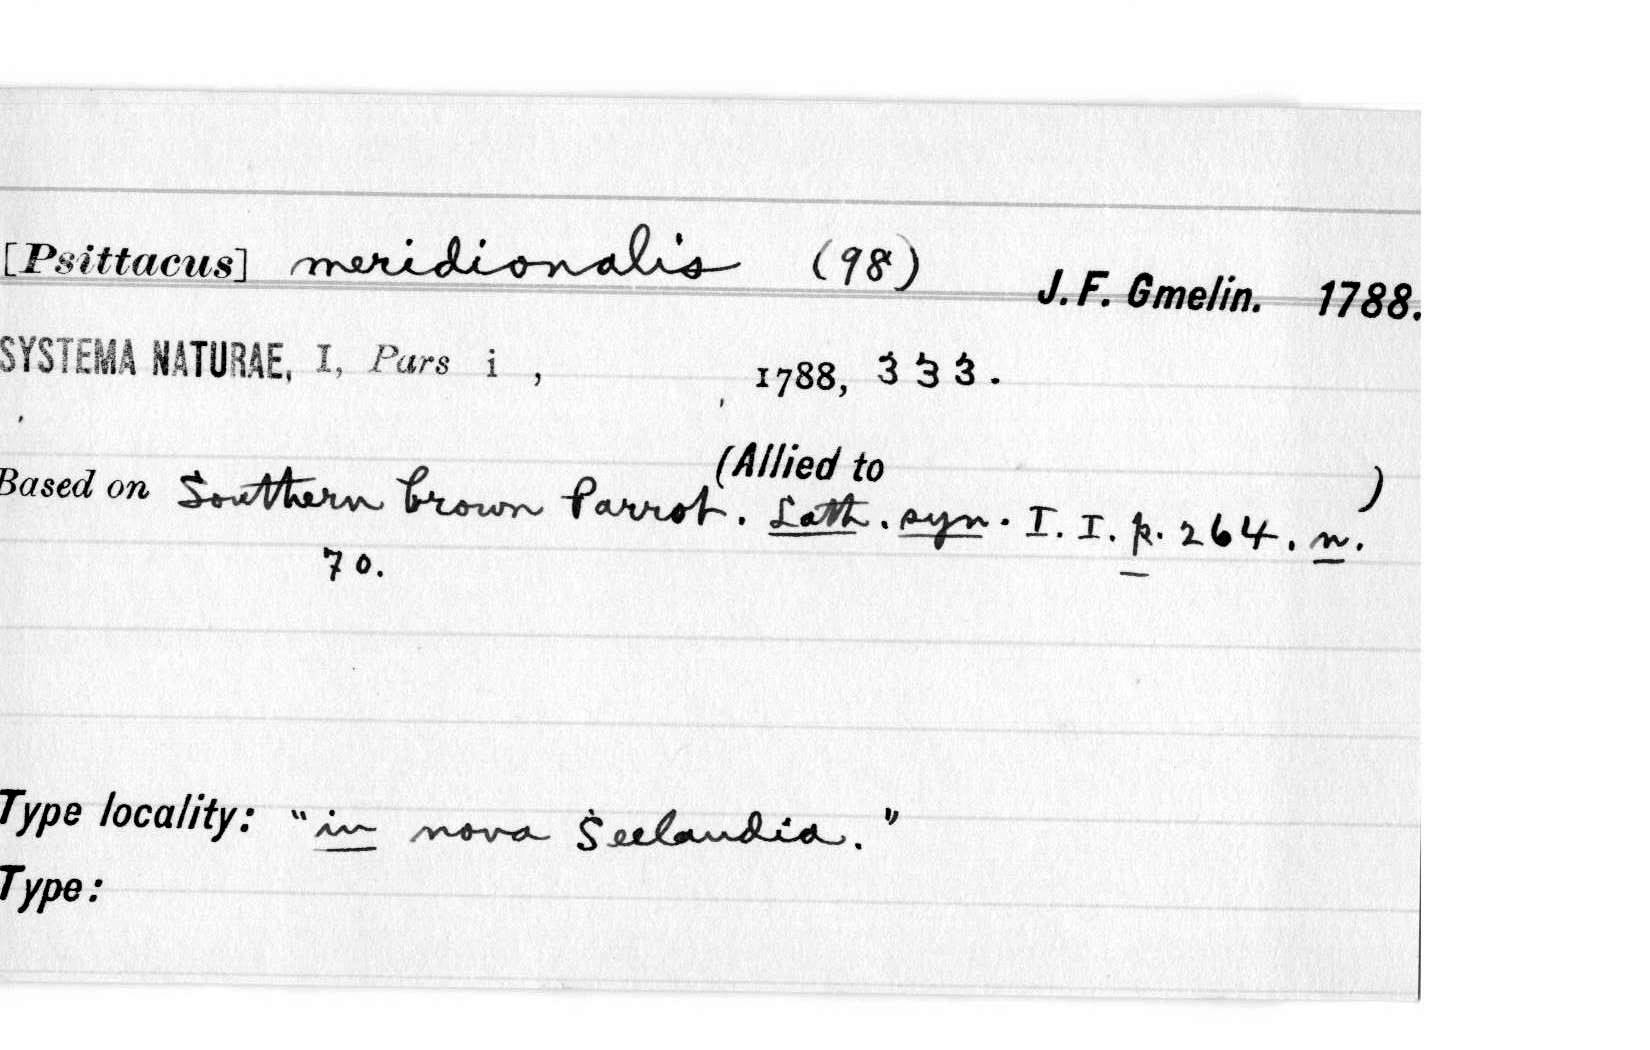 [Psittacus] meridionalis (98) J. F. Gmelin. 1788.
SYSTEMA NATURAE, I, Pars i , 1788, 333.
(Allied to )
Based on Southern brown Parrot. Lath. syn. I. I. p. 264. n.
70.
Type locality: "in nova Seelandia."
Type: